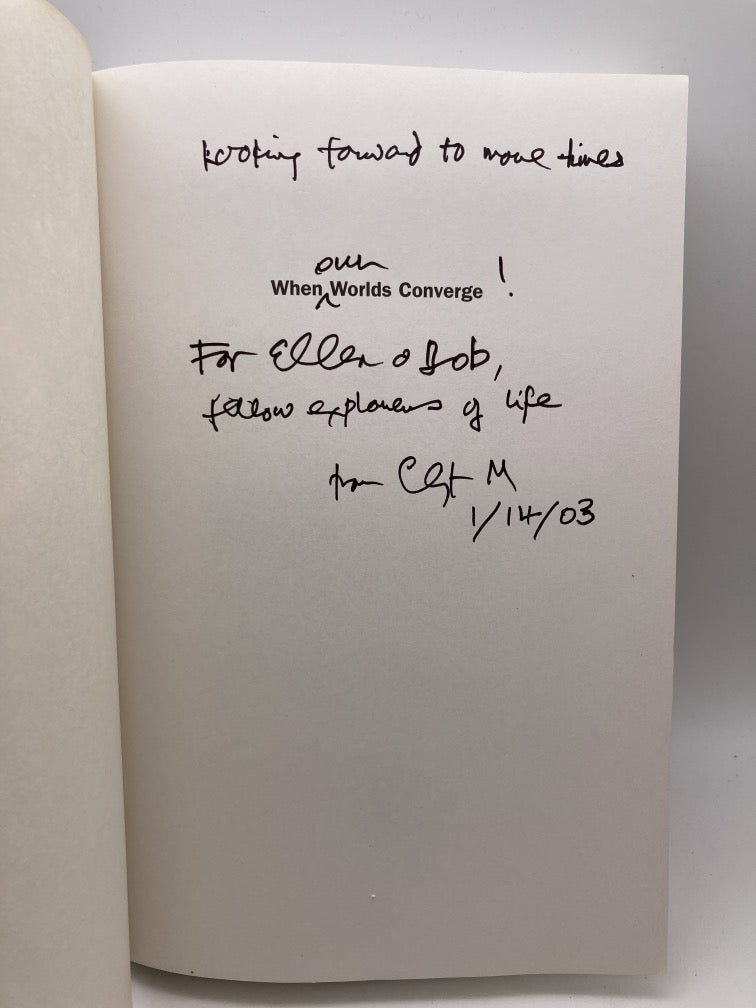 Looking forward to more times
our
When Worlds Converge !
For Ellen & Bob,
fellow explorers of life
from M
1/14/03